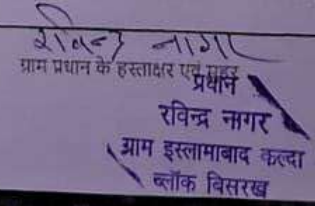 रविन्द्र नागर
ग्राम प्रधान के हस्ताक्षर एवं मुहर
प्रधान
रविन्द्र नागर
ग्राम इस्लामाबाद कल्दा
ब्लॉक बिसरख